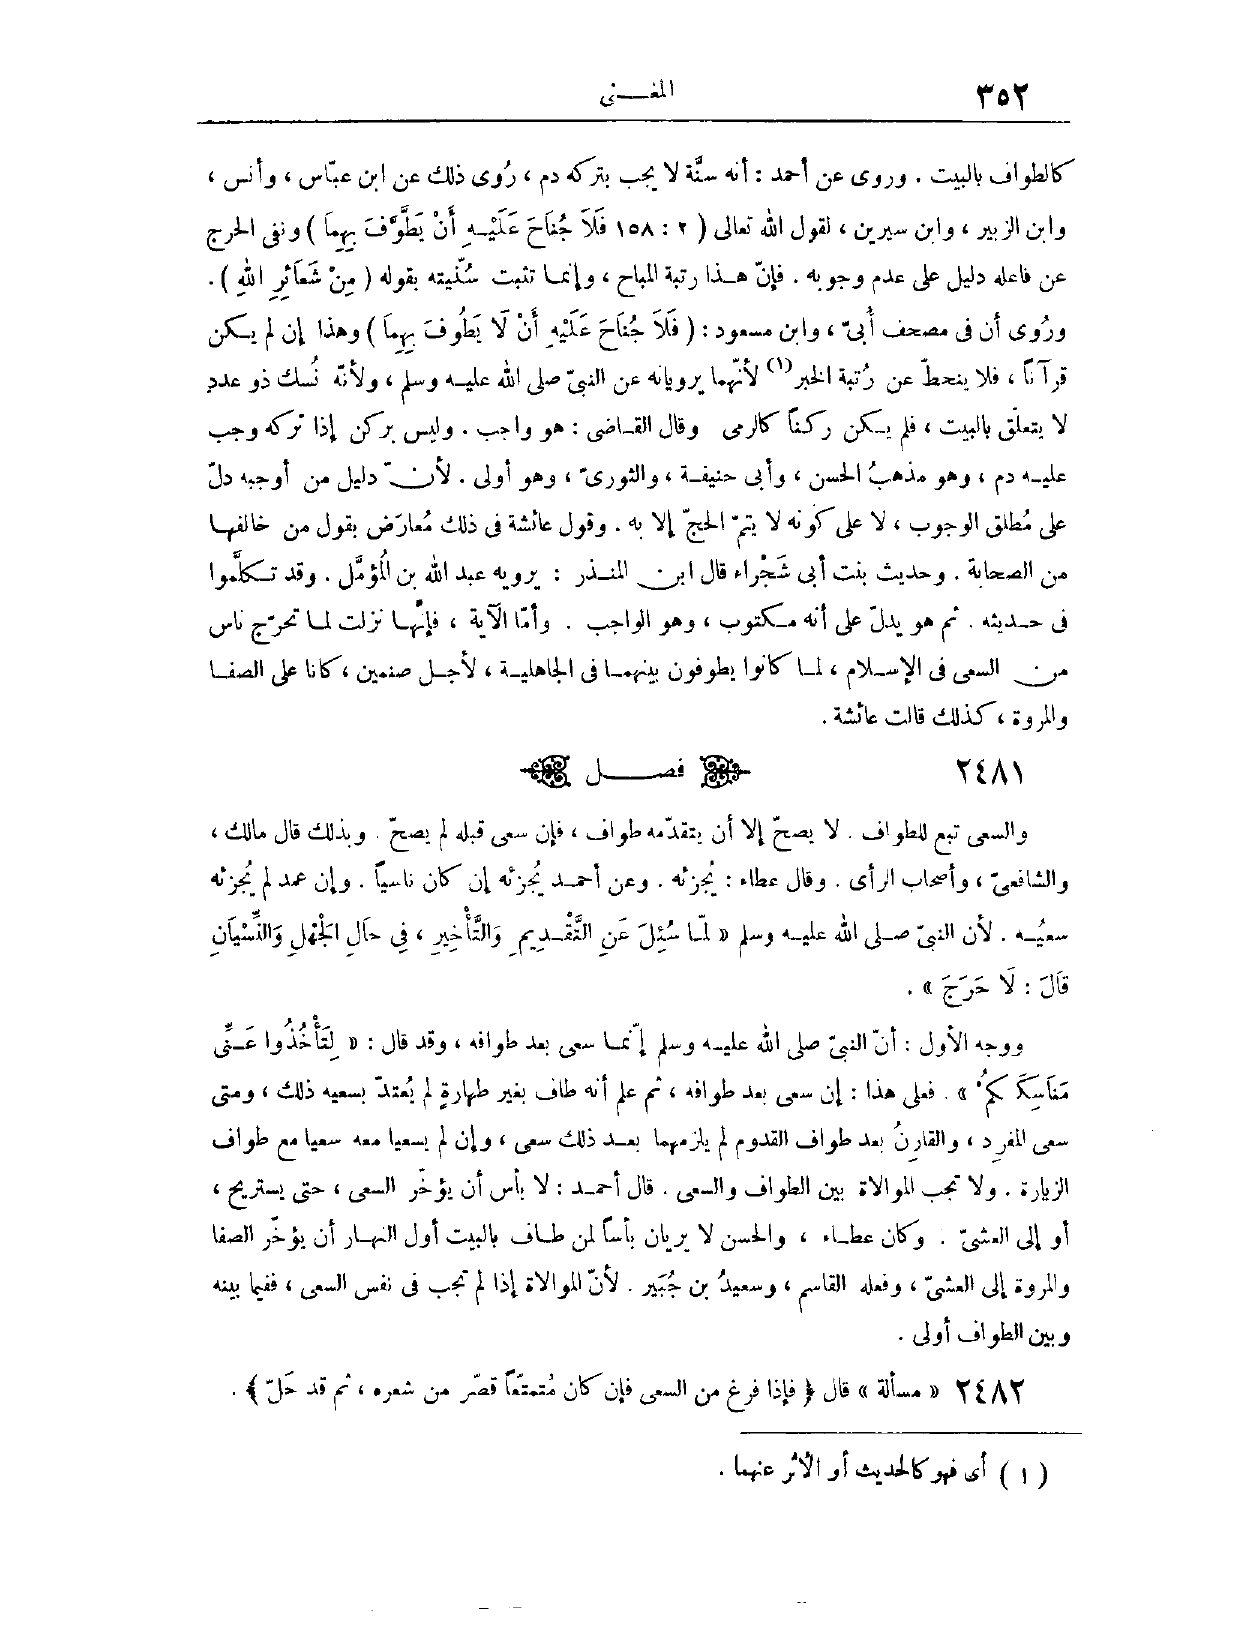 ٣٥٢
المغنى
كالطواف بالبيت . وروى عن أحمد : أنه سنَّة لا يجب بتركه دم ، رُوى ذلك عن ابن عبّاس ، وأنس ،
وابن الزبير ، وابن سيرين ، لقول الله تعالى ( ٢ : ١٥٨ فَلَا جُنَاحَ عَلَيْهِ أَنْ يَطَّوَّفَ بِهِمَا ) ونفى الحرج
عن فاعله دليل على عدم وجوبه . فإنّ هذا رتبة المباح ، وإنما تثبت سُنّيته بقوله ( مِنْ شَعَائِرِ اللهِ ) .
ورُوى أن فى مصحف أُبىّ ، وابن مسعود : ( فَلَا جُنَاحَ عَلَيْهِ أَنْ لَا يَطُوفَ بِهِمَا ) وهذا إن لم يكن
قرآناً ، فلا ينحطّ عن رُتبة الخبر(١) لأنّهما يرويانه عن النبىّ صلى الله عليه وسلم ، ولأنّه نُسك ذو عددٍ
لا يتعلّق بالبيت ، فلم يكن ركناً كالرمى وقال القاضى : هو واجب . وليس بركن إذا تركه وجب
عليه دم ، وهو مذهبُ الحسن ، وأبى حنيفة ، والثورىّ ، وهو أولى . لأنّ دليل من أوجبه دلّ
على مُطلق الوجوب ، لا على كونه لا يتمّ الحجّ إلا به . وقول عائشة فى ذلك مُعارَض بقول من خالفها
من الصحابة . وحديث بنت أبى شَجْراء قال ابن المنذر : يرويه عبد الله بن المُؤمَّل . وقد تكلَّموا
فى حديثه . ثم هو يدلّ على أنه مكتوب ، وهو الواجب . وأمّا الآية ، فإنَّها نزلت لما تحرّج ناس
من السعى فى الإسلام ، لما كانوا يطوفون بينهما فى الجاهلية ، لأجل صنمين ، كانا على الصفا
والمروة ، كذلك قالت عائشة .
٢٤٨١ فصل
والسعى تبع للطواف . لا يصحّ إلا أن يتقدّمه طواف ، فإن سعى قبله لم يصحّ . وبذلك قال مالك ،
والشافعىّ ، وأصحاب الرأى . وقال عطاء : يُجزئه . وعن أحمد يُجزئه إن كان ناسياً . وإن عمد لم يُجزئه
سعيُه . لأن النبىّ صلى الله عليه وسلم « لمّا سُئِلَ عَنِ التَّقْدِيمِ وَالتَّأْخِيرِ ، فِى حَالِ الجَهْلِ وَالنِّسْيَانِ
قَالَ : لَا حَرَجَ » .
ووجه الأول : أنّ النبىّ صلى الله عليه وسلم إنّما سعى بعد طوافه ، وقد قال : « لِتَأْخُذُوا عَنِّى
مَنَاسِكَكُمْ » . فعلى هذا : إن سعى بعد طوافه ، ثم علم أنه طاف بغير طهارةٍ لم يُعتدّ بسعيه ذلك ، ومتى
سعى المفرِد ، والقارِنُ بعد طواف القدوم لم يلزمهما بعد ذلك سعى ، وإن لم يسعيا معه سعيا مع طواف
الزيارة . ولا تجب الموالاة بين الطواف والسعى . قال أحمد : لا بأس أن يؤخّر السعى ، حتى يستريح ،
أو إلى العشىّ . وكان عطاء ، والحسن لا يريان بأساً لمن طاف بالبيت أول النهار أن يؤخّر الصفا
والمروة إلى العشىّ ، وفعله القاسم ، وسعيدُ بن جُبَير . لأنّ الموالاة إذا لم تجب فى نفس السعى ، ففيما بينه
وبين الطواف أولى .
٢٤٨٢ « مسألة » قال ﴿ فإذا فرغ من السعى فإن كان مُتمتّعاً قصّر من شعره ، ثم قد حَلّ ﴾ .
( ١ ) أى فهو كالحديث أو الأثر عنهما .